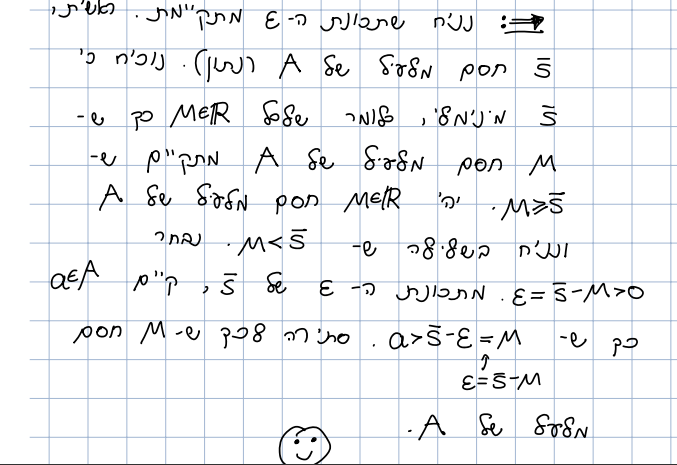 ⇐: נניח שתכונת ה-ε מתקיימת. ראשית,
s̄ חסם מלעיל של A (נתון). נוכיח כי
s̄ מינימלי, כלומר שלכל M∈ℝ כך ש-
M חסם מלעיל של A מתקיים ש-
M≥s̄. יהי M∈ℝ חסם מלעיל של A
ונניח בשלילה ש- M<s̄. נבחר
ε=s̄-M>0. מתכונת ה-ε של s̄, קיים a∈A
כך ש- a>s̄-ε=M. סתירה לכך ש-M חסם
↑
ε=s̄-M
מלעיל של A.